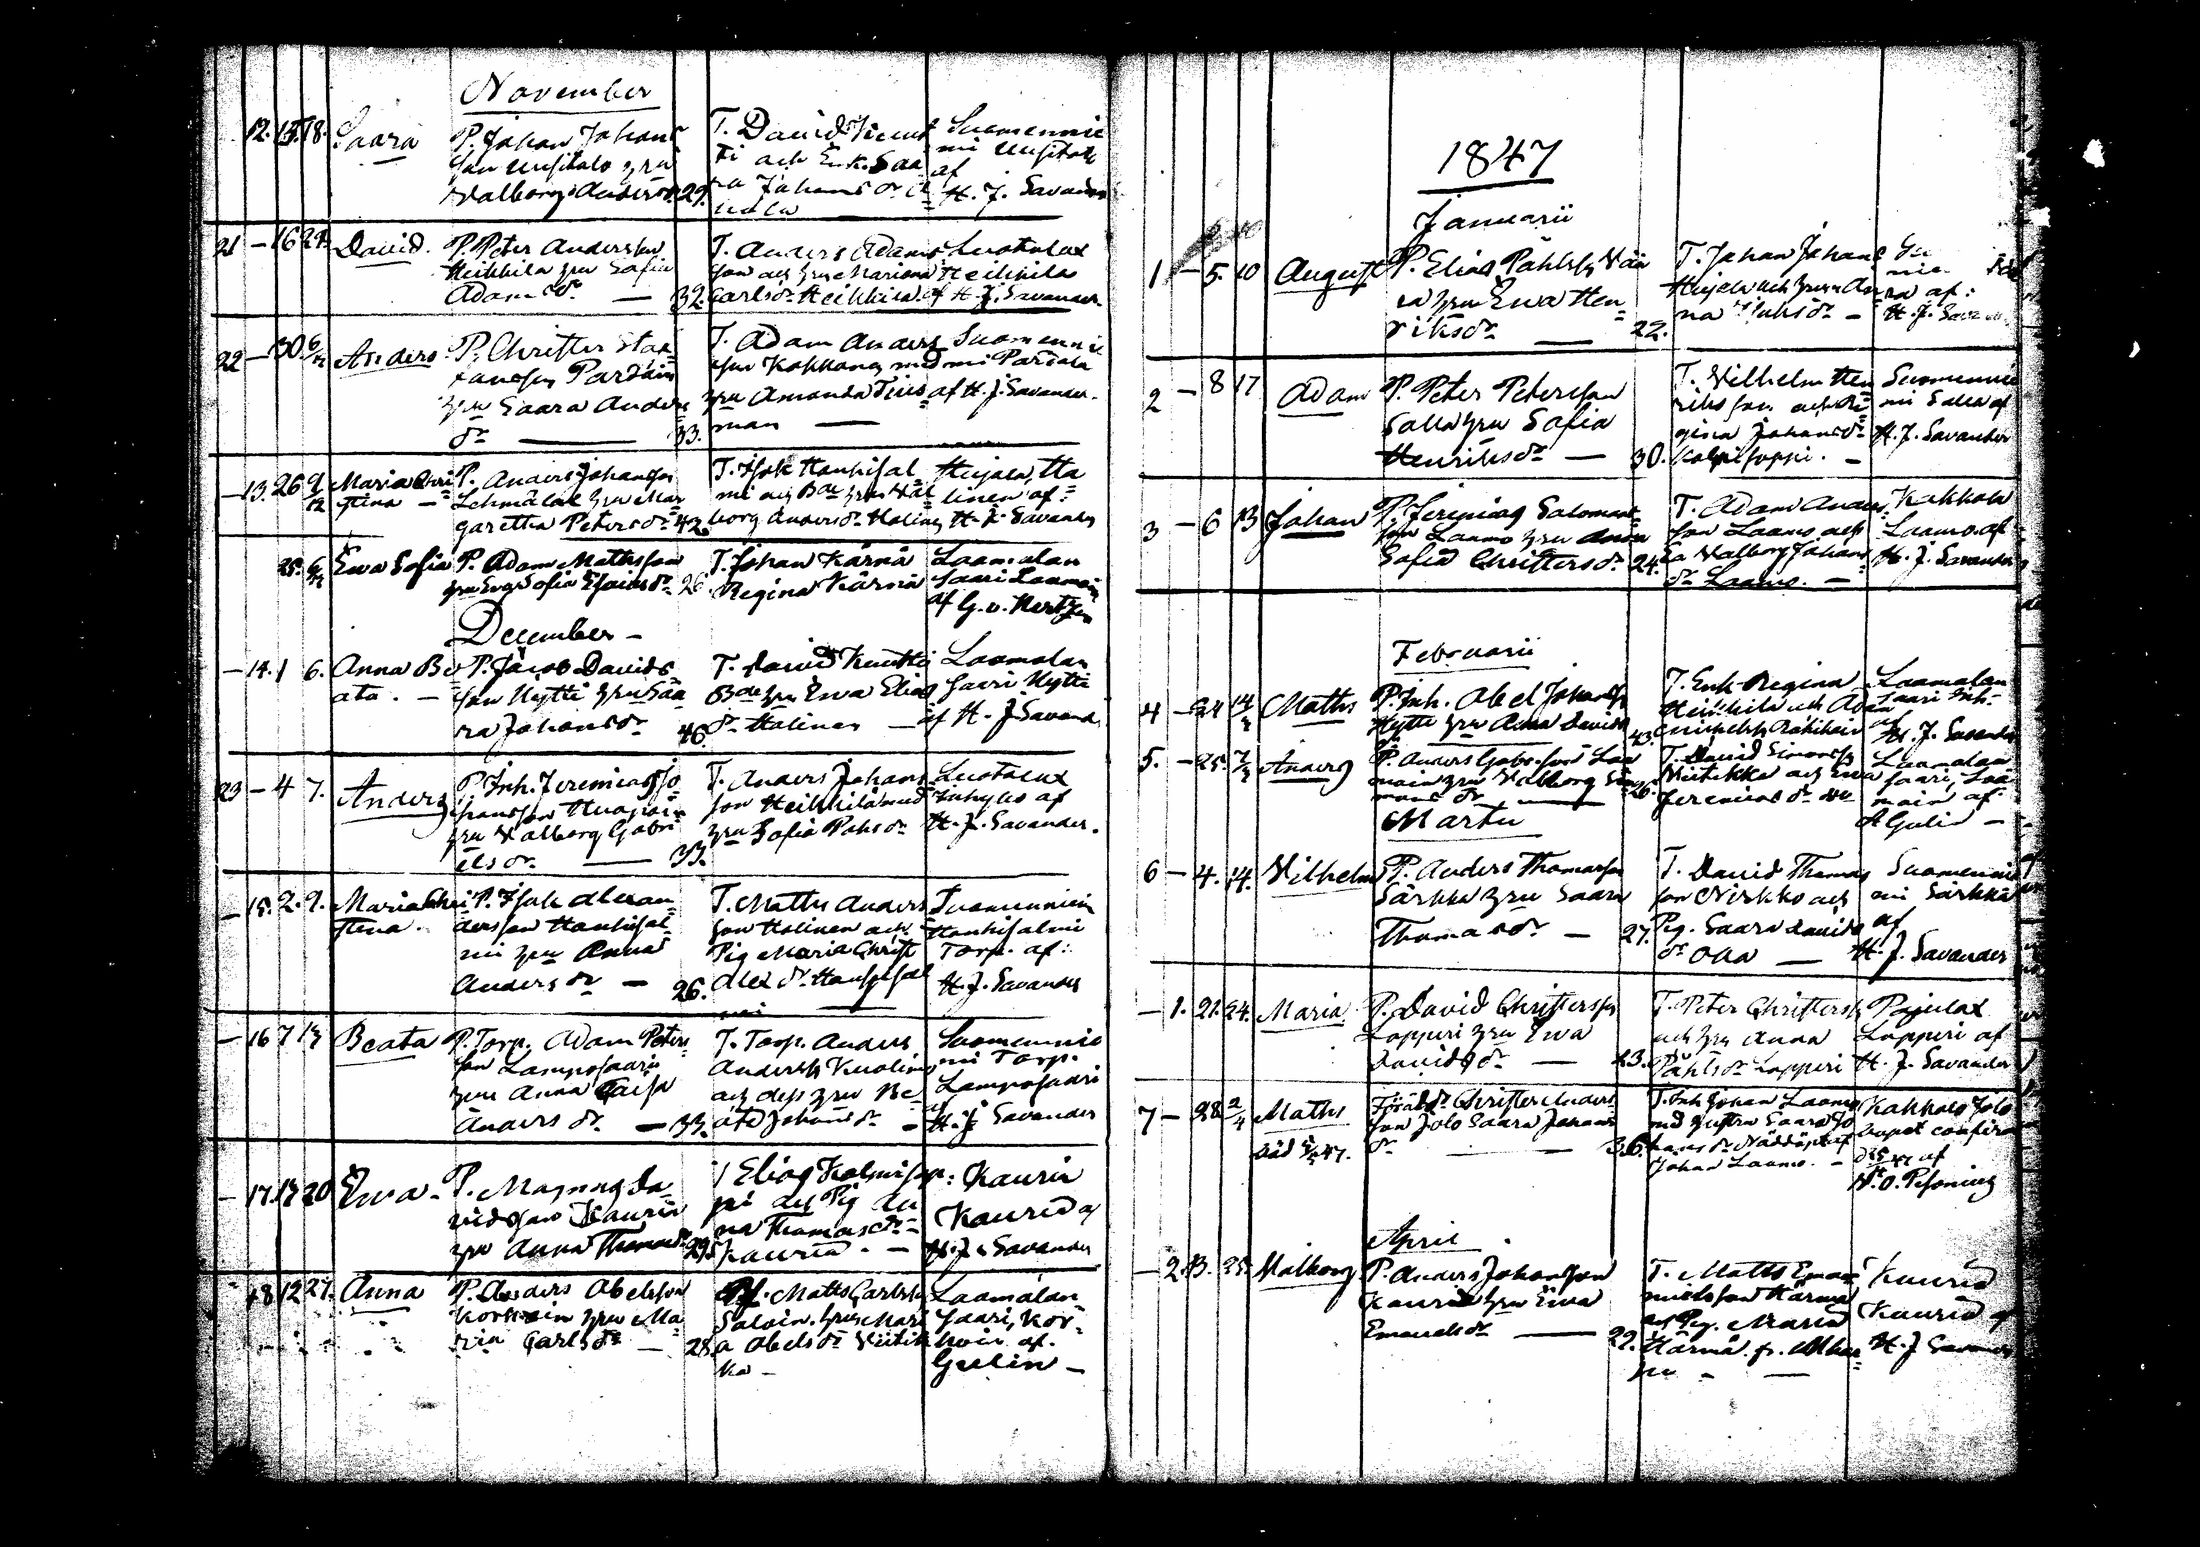 November
12. 15. 18. Saara P. Johan Johans
son Uusitalo hru
Walborg Anders dr 29.
T. David Kimt
ti och Enk. Saa
ra Johans dr
Suomennie
mi Uusitalo
af
H. J. Savander
21 - 16 24. David. P. Peter Andersson
Heikkilä hru Sofia
Adams dr — 32.
T. Anders Adams
son och hru Mariana
Carls dr Heikkilä.
Luotolax
Heikkilä
af H. J. Savander.
22 - 30 6/12 Anders P. Christer Staf
fansson Pardain
hru Saara Anders
dr — 33.
T. Adam Anders
son Kokkonen med
hru Amanda Tius
man —
Suomennie
mi Partala
af H. J. Savander.
- 13. 26 9/12 Maria Chri
stina —
P. Anders Johansson
hru Mar
garetha Peters dr 42
T. Isak Hanhisal
mi och hru Wal
borg Anders dr Holinen
Hujala, Ha
linen af
H. J. Savander
25. 6/12 Ewa Sofia P. Adam Mathsson
hru Eva Sofia Esaias dr 26.
T. Johan Kärnä
Regina Kärnä
Laamalan
saari Laamain
af G. v. Hertzen
December —
- 14. 1 6. Anna Be
ata. —
P. Jacob Davids
son Hytti hru Saa
ra Johans dr 40.
T. David Kuutti
hru Ewa Elias
dr Holinen —
Laamalan
saari Hytti
af H. J. Savand.
23 - 4 7. Anders P. Inh. Jeremias Jo
hansson
hru Walborg Gabri
els dr — 33.
T. Anders Johans
son Heikkilä med
hru Sofia Påhls dr
Luotolax
Inhyses af
H. J. Savander.
- 15. 2. 9. Maria Chri
stina.
P. Isak Alexan
dersson Hanhisal
mi hru Anna
Anders dr — 26.
T. Matts Anders
son Holinen och
Pig Maria Christ
Alex dr Hanhisal
mi —
Suomenniemi
Hanhisalmi
Torp. af:
H. J. Savander
- 16 7 13 Beata P. Torp. Adam Peters
son Lamposaari
hru Anna Caisa
Anders dr — 33.
T. Torp. Anders
Anderss Kuolimo
och dess hru Be
ata Johans dr —
Suomennie
mi Torp.
Lamposaari
af
H. J. Savander
- 17. 17 20 Ewa. P. Magnus Da
vidsson Kauria
hru Anna Thomas dr 29.
T. Elias Kolmisop
pi och Pig An
na Thomas dr
Kauria. —
Kauria
Kauria af
H. J. Savander
18 12 27. Anna P. Anders Abelsson
Korhoin hru Ma
ria Carls dr — 28.
T. Matts Carlss
Saloin. hru Mari
a Abels dr Niitik
ka —
Laamalan
saari, Kor
hoin af.
Gulin —
1847
Januarii
1 - 5. 10 August P. Elias Påhlss Wää
rä hru Ewa Hen
riks dr — 22.
T. Johan Johans
Hujala och hru An
na dr —
af:
H. J. Savander
2 - 8 17 Adam P. Peter Petersson
Salla hru Sofia
Henriks dr — 30.
T. Wilhelm Hen
riksson och Re
gina Johans dr
Kolmisoppi. —
Suomennie
mi Salla af
H. J. Savander
3 - 6 13 Johan P. Jeremias Salomons
son Laamo hru Anna
Sofia Christers dr 24.
T. Adam Anders
son Laamo och
Walborg Johans
dr Laamo. —
Kakkola
Laamo. af
H. J. Savander
Februarii
4 - 24 14/3 Maths P. Inh. Abel Johanss
Hytti hru Anna Davids
dr 43.
T. Enk Regina
Heikkilä och Adam
Laamalan
saari Inh.
af
H. J. Savander
5. - 25. 7/3 Anders P. Anders Gabr. son Laa
main hru Walborg Si
mons dr — 26.
T. David Simonss
Niitikka och Ewa
Jeremias dr
Laamalan
saari, Laa
main af
A Gulin —
Martii
6 - 4. 14. Wilhelm P. Anders Thomasson
Särkkä hru Saara
Thomas dr — 27.
T. David Thomas
son Nirkko och
Pig. Saara Davids
dr Olla —
Suomennie
mi Särkkä
af
H. J. Savander
- 1. 21. 24. Maria P. David Christerss
Loppuri hru Ewa
Davids dr — 23.
T. Peter Christerss
och hru Anna
Påhls dr Loppuri
Pajulax
Loppuri af
H. J. Savander
7 - 28 2/4 Maths
död 5/5 47.
Föräldr Christer Anders
son Jolo Saara Johans
dr — 36.
T. Inh Johan Laamo
med hustru Saara Jo
hans dr Nöddöpt af
Johan Laamo. —
Kakkola Jolo
dopet confirm
d af
N. O. Pesonius
April
- 2. 13. 25. Walborg P. Anders Johansson
Kauria hru Ewa
Emanuels dr — 22.
T. Matts Eman
uelsson Härmä
och Pig. Maria
Härmä. fr.
Kauria
Kauria af
H. J. Savander